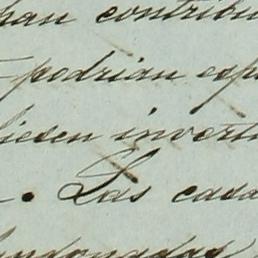 han contribu
podrian esp
liesen invert
. Las casa